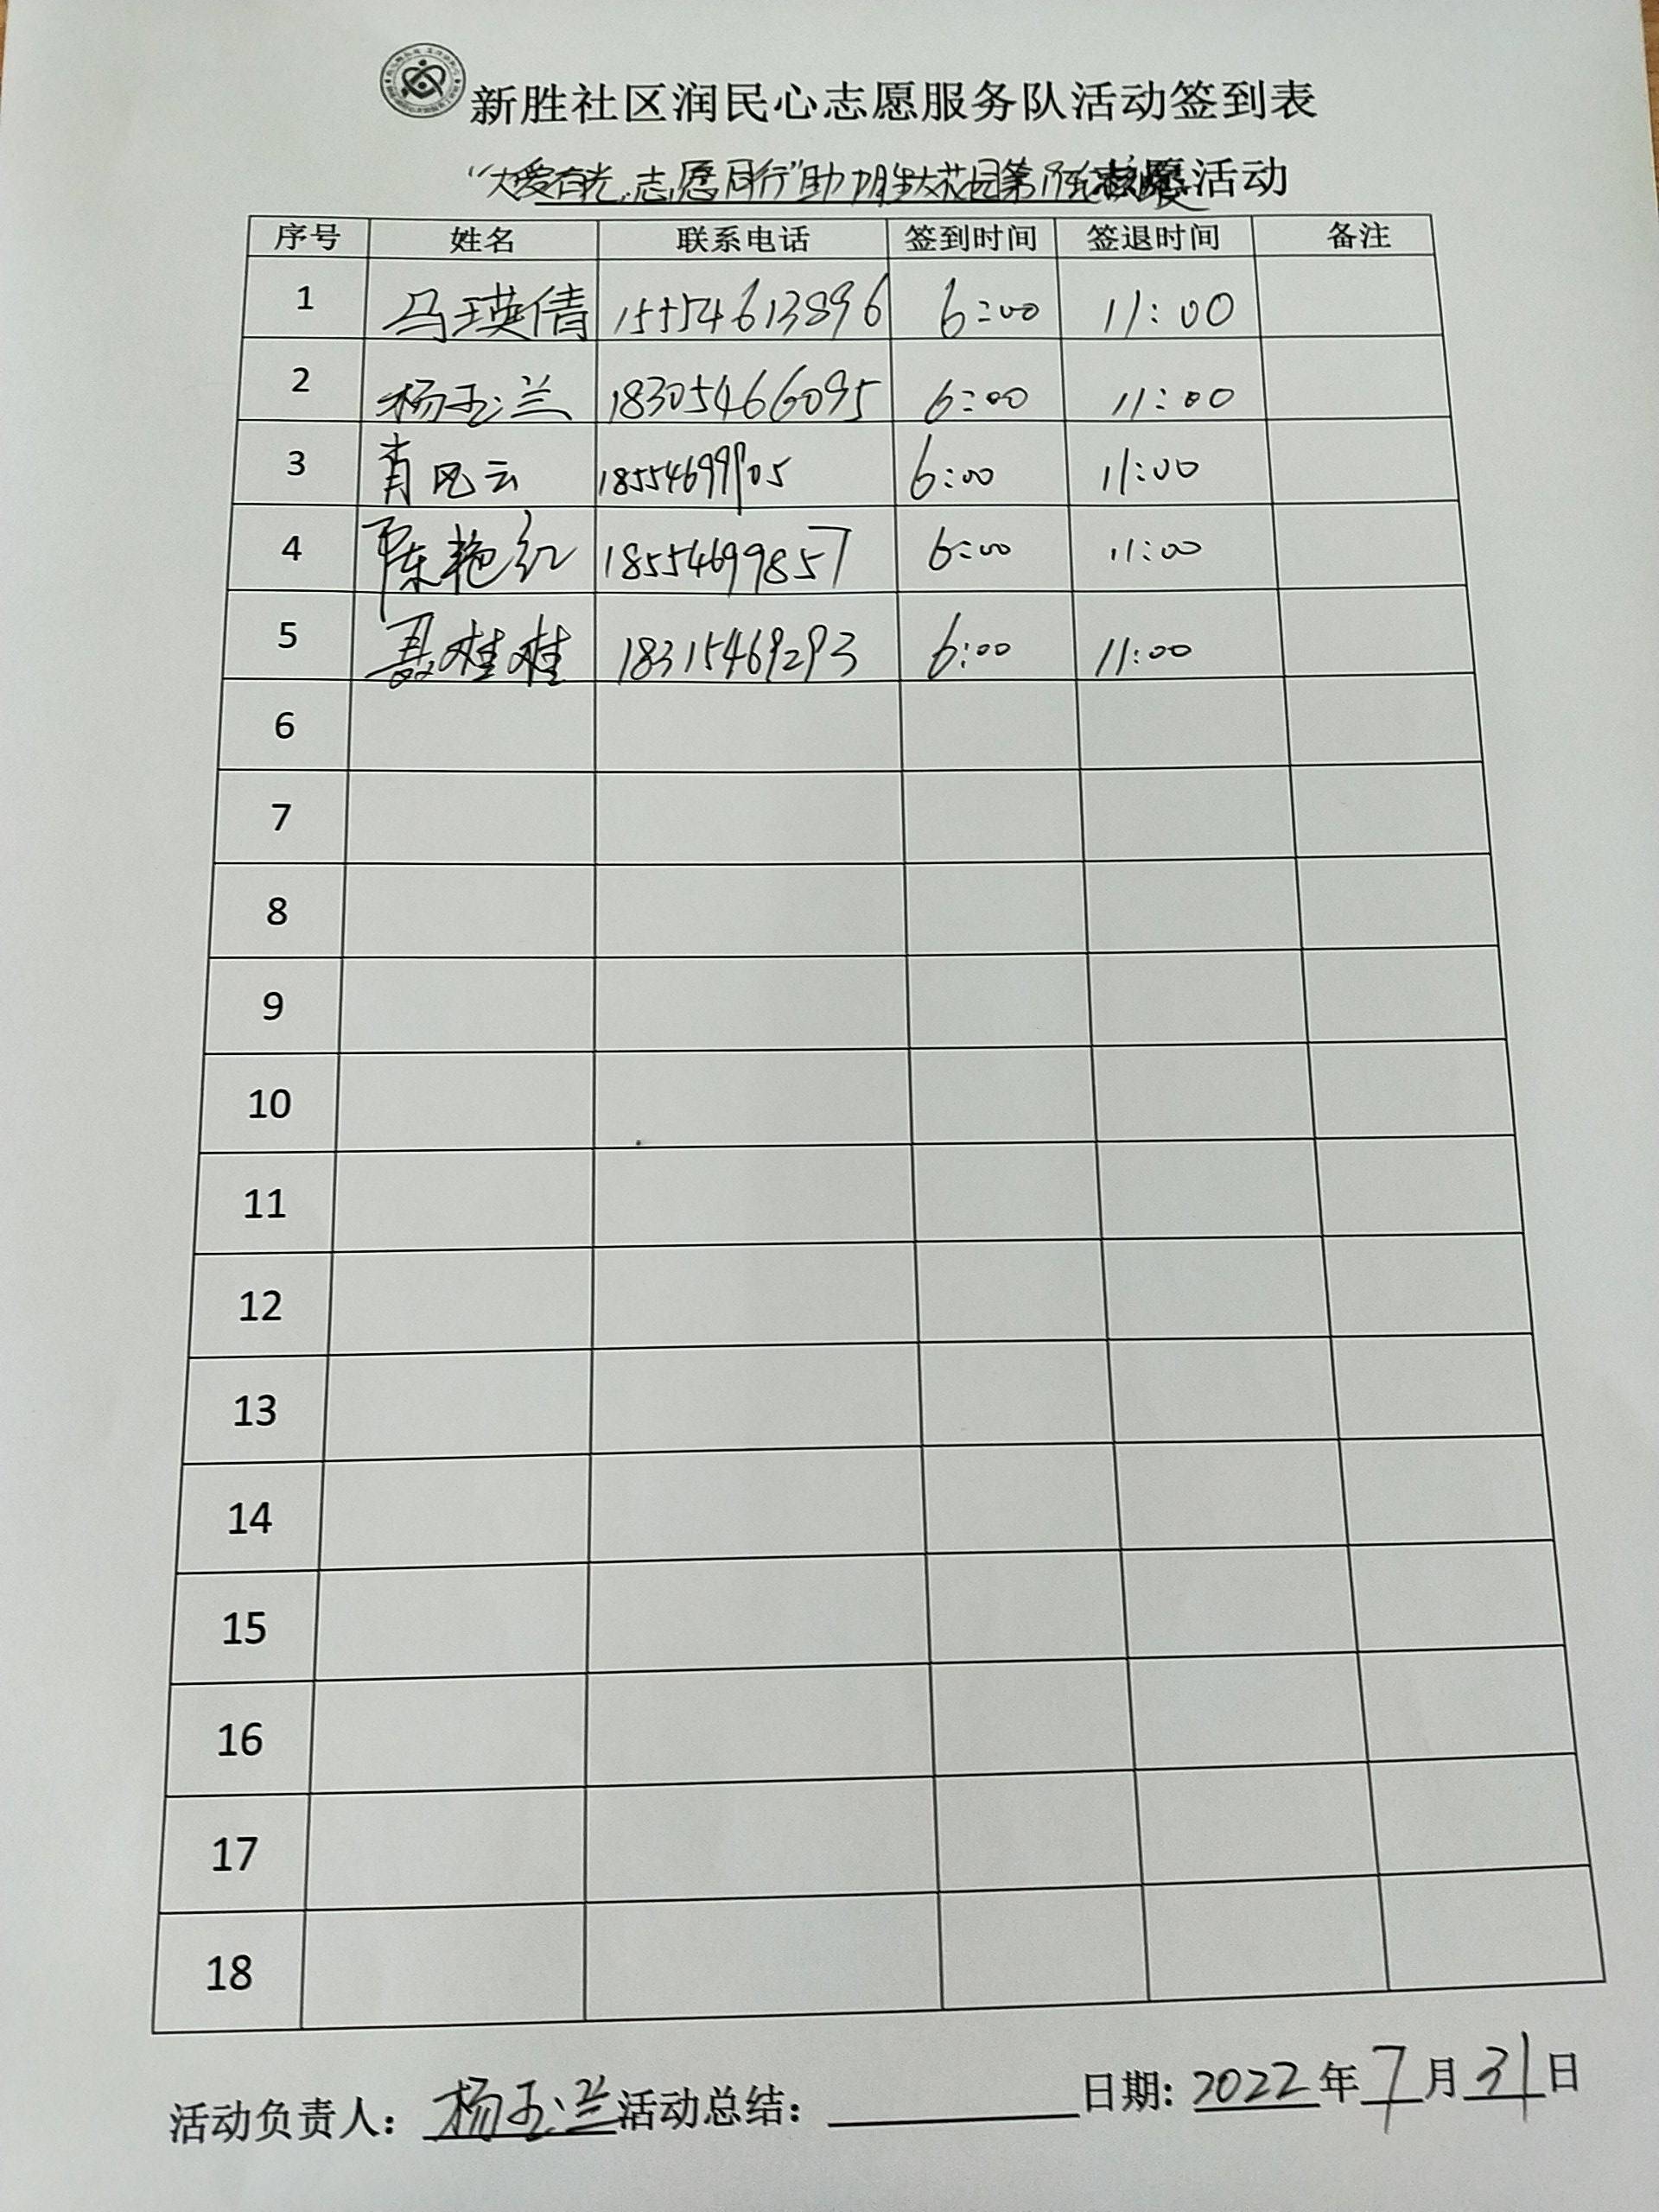 新胜社区润民心志愿服务队活动签到表
“大爱有光,志愿同行”助力民生大花园第 志愿活动
序号 姓名 联系电话 签到时间 签退时间 备注
1 马瑛倩 15554613896 6:00 11:00
2 杨玉兰 18305466095 6:00 11:00
3 肖风云 18554699905 6:00 11:00
4 陈艳红 18554699857 6:00 11:00
5 聂桂桂 18315469293 6:00 11:00
6
7
8
9
10
11
12
13
14
15
16
17
18
活动负责人: 杨玉兰 活动总结: 日期: 2022年7月31日